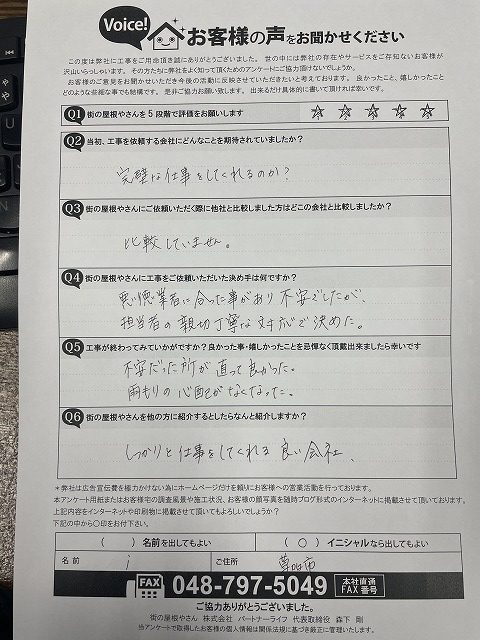 Voice! お客様の声をお聞かせください
この度は弊社に工事をご用命頂き誠にありがとうございました。 世の中には弊社の存在やサービスをご存知ないお客様が
沢山いらっしゃいます。 その方たちに弊社をよく知って頂くためのアンケートにご協力頂けないでしょうか。
お客様のご意見をお聞かせいただき今後の活動に反映させていただきたいと考えております。 良かったこと、嬉しかったこと
どのような些細な事でも結構です。 是非ご協力お願い致します。 出来るだけ具体的に書いて頂ければ幸いです。
Q1 街の屋根やさんを5段階で評価をお願いします ☆ ☆ ☆ ☆ ☆
Q2 当初、工事を依頼する会社にどんなことを期待されていましたか?
完璧な仕事をしてくれるのか?
Q3 街の屋根やさんにご依頼いただく際に他社と比較しました方はどこの会社と比較しましたか?
比較していません。
Q4 街の屋根やさんに工事をご依頼いただいた決め手は何ですか?
悪徳業者に合った事があり不安でしたが、
担当者の親切丁寧な対応で決めた。
Q5 工事が終わってみていかがですか?良かった事・嬉しかったことを忌憚なく頂戴出来ましたら幸いです
不安だった所が直って良かった。
雨もりの心配がなくなった。
Q6 街の屋根やさんを他の方に紹介するとしたらなんと紹介しますか?
しっかりと仕事をしてくれる良い会社
*弊社は広告宣伝費を極力かけない為にホームページだけを頼りにお客様への営業活動を行っております。
本アンケート用紙またはお客様宅の調査風景や施工状況、お客様の顔写真を随時ブログ形式のインターネットに掲載させて頂いております。
上記内容をインターネットや印刷物に掲載させて頂いてもよろしいでしょうか?
下記の中から〇印をお付下さい。
( ) 名前を出してもよい ( 〇 ) イニシャルなら出してもよい
名前 i ご住所 草加市
FAX 048-797-5049 本社直通 FAX番号
ご協力ありがとうございました。
街の屋根やさん 株式会社 パートナーライフ 代表取締役 森下 剛
当アンケートで取得したお客様の個人情報は関係法規に基づき厳正に管理いたします。